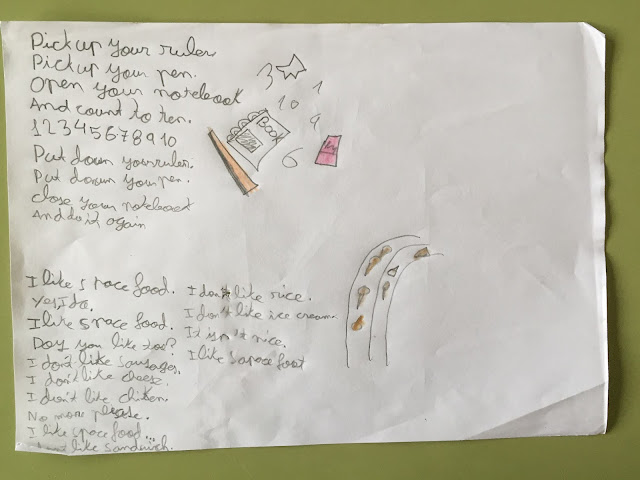 Pick up your ruler
Pick up your pen.
Open your notebook
And count to ten.
12345678910
Put down your ruler.
Put down your pen.
close your notebook
And do it again
3
1
10
9
6
Book
I like space food.
Yes, I do.
I like space food.
Doy you like too?
I don't like sausages.
I don't like cheez.
I don't like chiken.
No more please.
I like space food...
like sandwich.
I don't like rice.
I don't like ice cream.
It isn't nice.
I like sapace foot